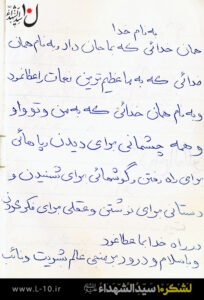 به نام خدا
همان خدائی که بما جان داد به نام همان
خدائی که به ما عظیم ترین نعمات را عطا نمود
و به نام همان خدائی که به من و تو و او
و همه چشمانی برای دیدن پاهائی
برای راه رفتن و گوشهائی برای شنیدن و
دستانی برای نوشتن و عقلی برای فکر کردن
در راه خدا بما عطا نمود
و با سلام و درود بر خاتم
لشکر۱۰ سیدالشهداء
www.L-10.ir